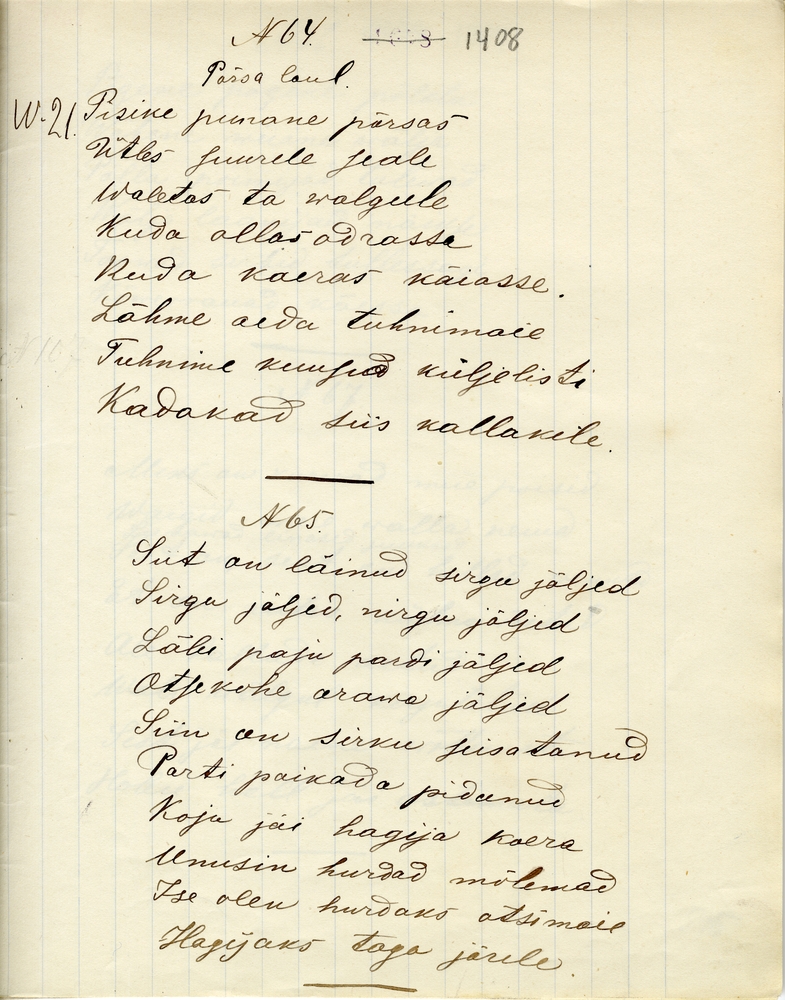 N 64. 1408
Põrsa laul.
W. 21. Pisine punane põrsas
Ütles suurele seale
Waletas ta walgule
Kuda ollas odrasse
Kuda kaeras käiasse.
Lähme aeda tuhnimaie
Tuhnime kuused küljelisti
Kadakad siis kallakile.
N 65.
Siit on läinud sirgu jäljed
Sirgu jäljed, nirgu jäljed
Läbi paju pardi jäljed
Otsekohe orawa jäljed
Siin on sirku seisatanud
Parti paikada pidanud
Koju jäi hagija koera
Unusin hurdad mõlemad
Ise olen hurdaks otsimaie
Hagijaks taga järele.